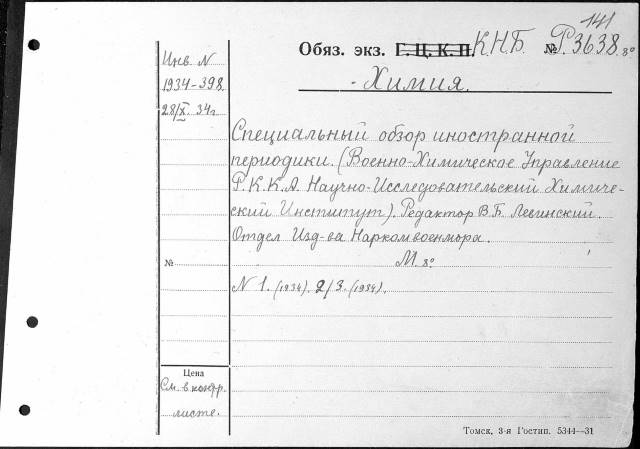 141
Обяз. экз. Г. Ц. К. П. К.Н.Б. № Р.3638. 8°
Химия.
Инв. N
1934-398.
28/X. 34г.
Специальный обзор иностранной
периодики. (Военно-Химическое Управление
Р.К.К.А. Научно-Исследовательский Химиче-
ский Институт). Редактор В.Б. Левинский.
Отдел Изд-ва Наркомвоенмора.
М. 8°
№
N 1. (1934). 2/3. (1934).
Цена
См. в контр.
листе.
Томск, 3-я Гостип. 5344—31